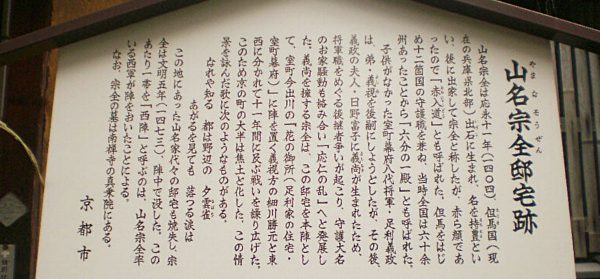 山名宗全邸宅跡
やまなそうぜん
山名宗全は応永十一年（一四〇四）、但馬国（現
在の兵庫県北部）出石に生まれ、名を持豊とい
い、後に出家して宗全と称したが、赤ら顔であ
ったので「赤入道」とも呼ばれた。但馬をはじ
め十二箇国の守護職を兼ね、当時全国は六十余
州あったことから「六分の一殿」とも呼ばれた。
子供がなかった室町幕府八代将軍・足利義政
は、弟・義視を後嗣にしようとしたが、その後、
義政の夫人・日野富子に義尚が生まれたため、
将軍職をめぐる後継者争いが起こり、守護大名
のお家騒動も絡み合い「応仁の乱」へと発展し
た。義尚を擁する宗全は、この邸宅を本陣とし
て、室町今出川の「花の御所（足利家の住宅・
室町幕府）」に陣を置く義視方の細川勝元と東
西に分かれて十一年間に及ぶ戦いを繰り広げた。
このため京の町の大半は焦土と化した。この情
景を詠んだ歌に次のようなものがある。
なれや知る 都は野辺の 夕雲雀
あがるを見ても 落つる涙は
この地にあった山名家代々の邸宅も焼失し、宗
全は文明五年（一四七三）、陣中で没した。この
あたり一帯を「西陣」と呼ぶのは、山名宗全率
いる西軍が陣をおいたことによる。
なお、宗全の墓は南禅寺の真乗院にある。
京都市